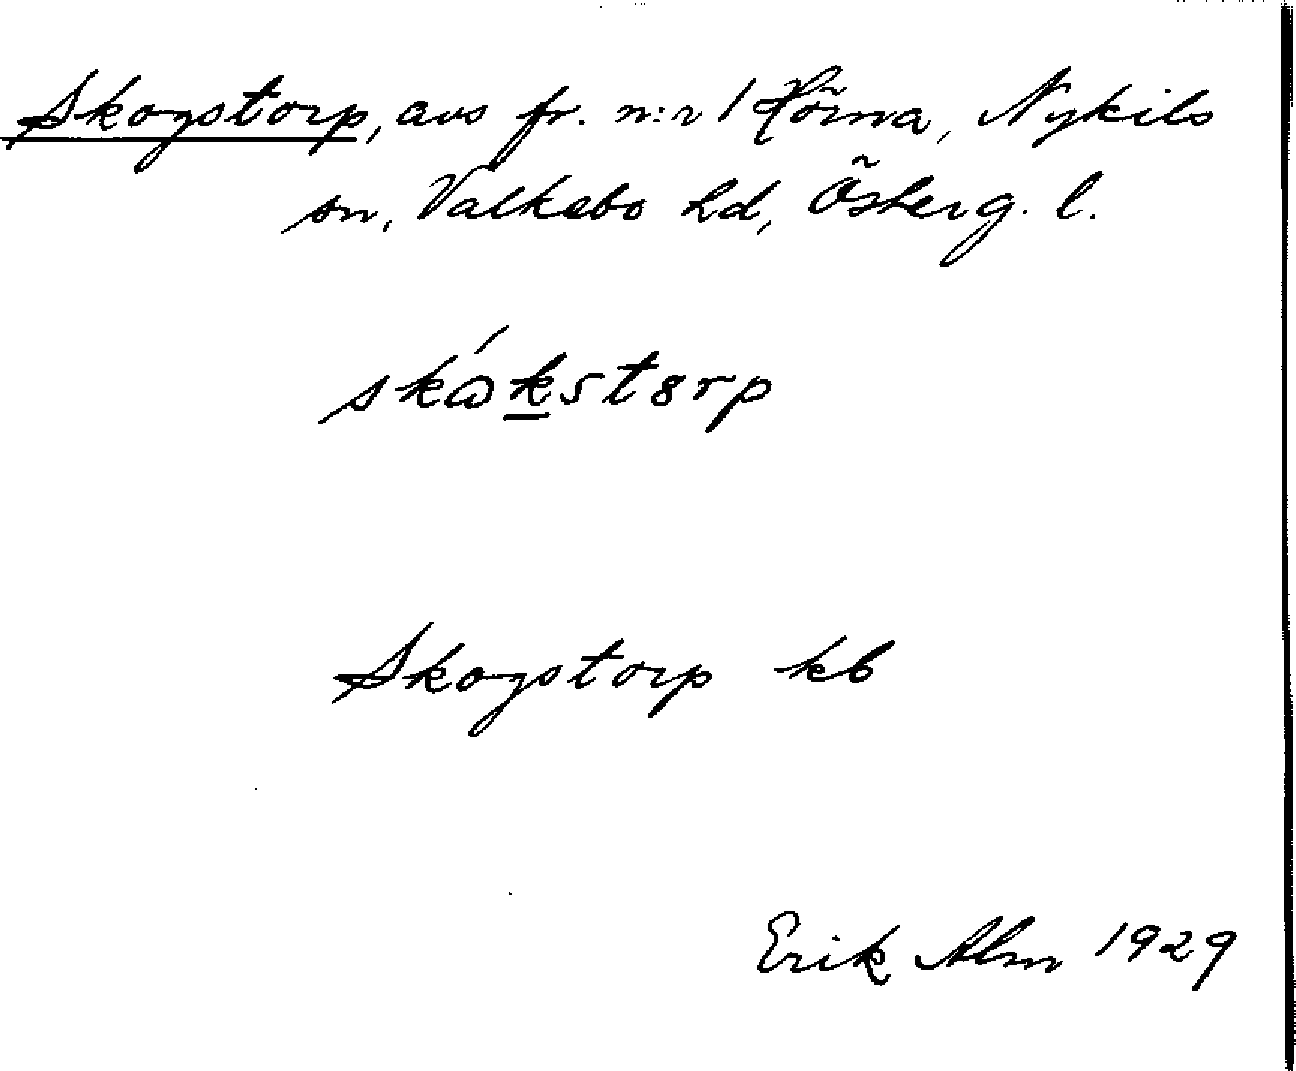 Skogstorp, avs fr. n:r 1 Hörna, Nykils
sn, Valkebo hd, Österg. l.
skɷ́kstɞrp
Skogstorp kb
Erik Alm 1929